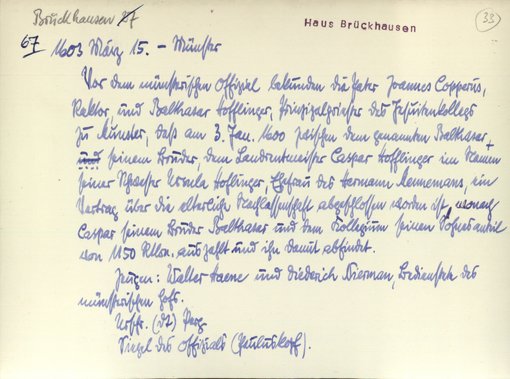 Brückhausen 67
Haus Brückhausen
33
67 1603 März 15. - Münster
Vor dem münsterischen Offizial bekunden die Pater Joannes Copperus,
Rektor, und Balthasar Höfflinger, Prinzipalpriester des Jesuitenkollegs
zu Münster, daß am 3. Jan. 1600 zwischen dem genannten Balthasar
und seinem Bruder, dem Landrentmeister Caspar Höfflinger im Namen
seiner Schwester Ursula Höflinger, Ehefrau des Hermann Mennemans, ein
Vertrag über die elterlich Nachlassenschaft abgeschlossen worden ist, wonach
Caspar seinem Bruder Balthasar und dem Kollegium seinen Sohnesanteil
von 1150 Rtlrn. auszahlt und ihn damit abfindet.
Zeugen: Walter Haene und Diederich Nierman, Bedienstete des
münsterischen Hofs.
Urschr. (dt) Perg
Siegel des Offizials (Pauluskopf).